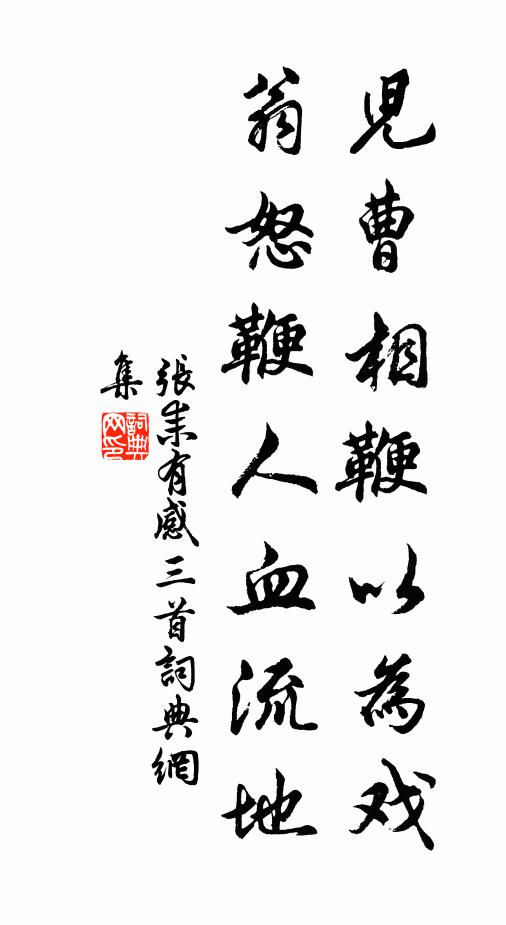 兒曹相鞭以為戏
翁怒鞭人血流地
張耒有感三首詞典網
集
詞典网印